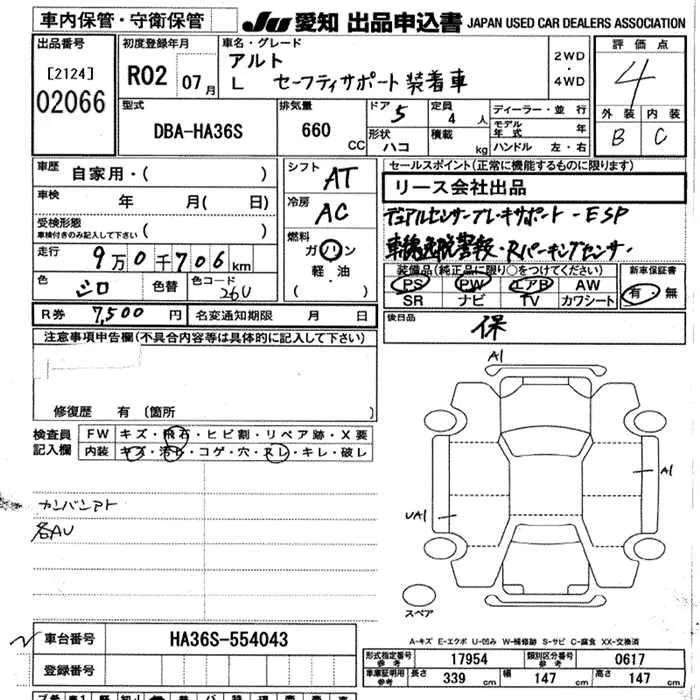 車内保管・守衛保管
JU 愛知 出品申込書 JAPAN USED CAR DEALERS ASSOCIATION
出品番号
[2124]
02066
初度登録年月
R02 07月
車名・グレード
アルト
L セーフティサポート装着車
2WD
・
4WD
評価点
4
外装 内装
B C
型式
DBA-HA36S
排気量
660 CC
ドア 5
形状 ハコ
定員 4 人
積載 kg
ディーラー・並行
モデル年式 年
ハンドル 左・右
車歴 自家用・( )
車検 年 月( 日)
受検形態
車検付きのみ記入して下さい ( )
走行 9万0千706km
色 シロ 色替 色コード 26U
シフト AT
冷房 AC
燃料
ガソリン
軽・油
( )
セールスポイント(正常に機能するものに限ります)
リース会社出品
デュアルセンサーブレーキサポート-ESP
車線逸脱警報・Rパーキングセンサ・
装備品(純正品に限り○をつけてください)
PS PW エアB AW
SR ナビ TV カワシート
新車保証書
有・無
R券 7,500円 名変通知期限 月 日
後日品 保
注意事項申告欄(不具合内容等は具体的に記入して下さい)
修復歴 有〔箇所 〕
検査員記入欄
FW キズ・飛石・ヒビ割・リペア跡・X要
内装 キズ・汚レ・コゲ・穴・スレ・キレ・破レ
カンバンアト
各AU
A1
A1
UA1
スペア
A-キズ E-エクボ U-凹み W-補修跡 S-サビ C-腐食 XX-交換済
車台番号 HA36S-554043
登録番号
形式指定番号 参考 17954 類別区分番号 参考 0617
車庫証明用 参考 長さ 339 cm 幅 147 cm 高さ 147 cm